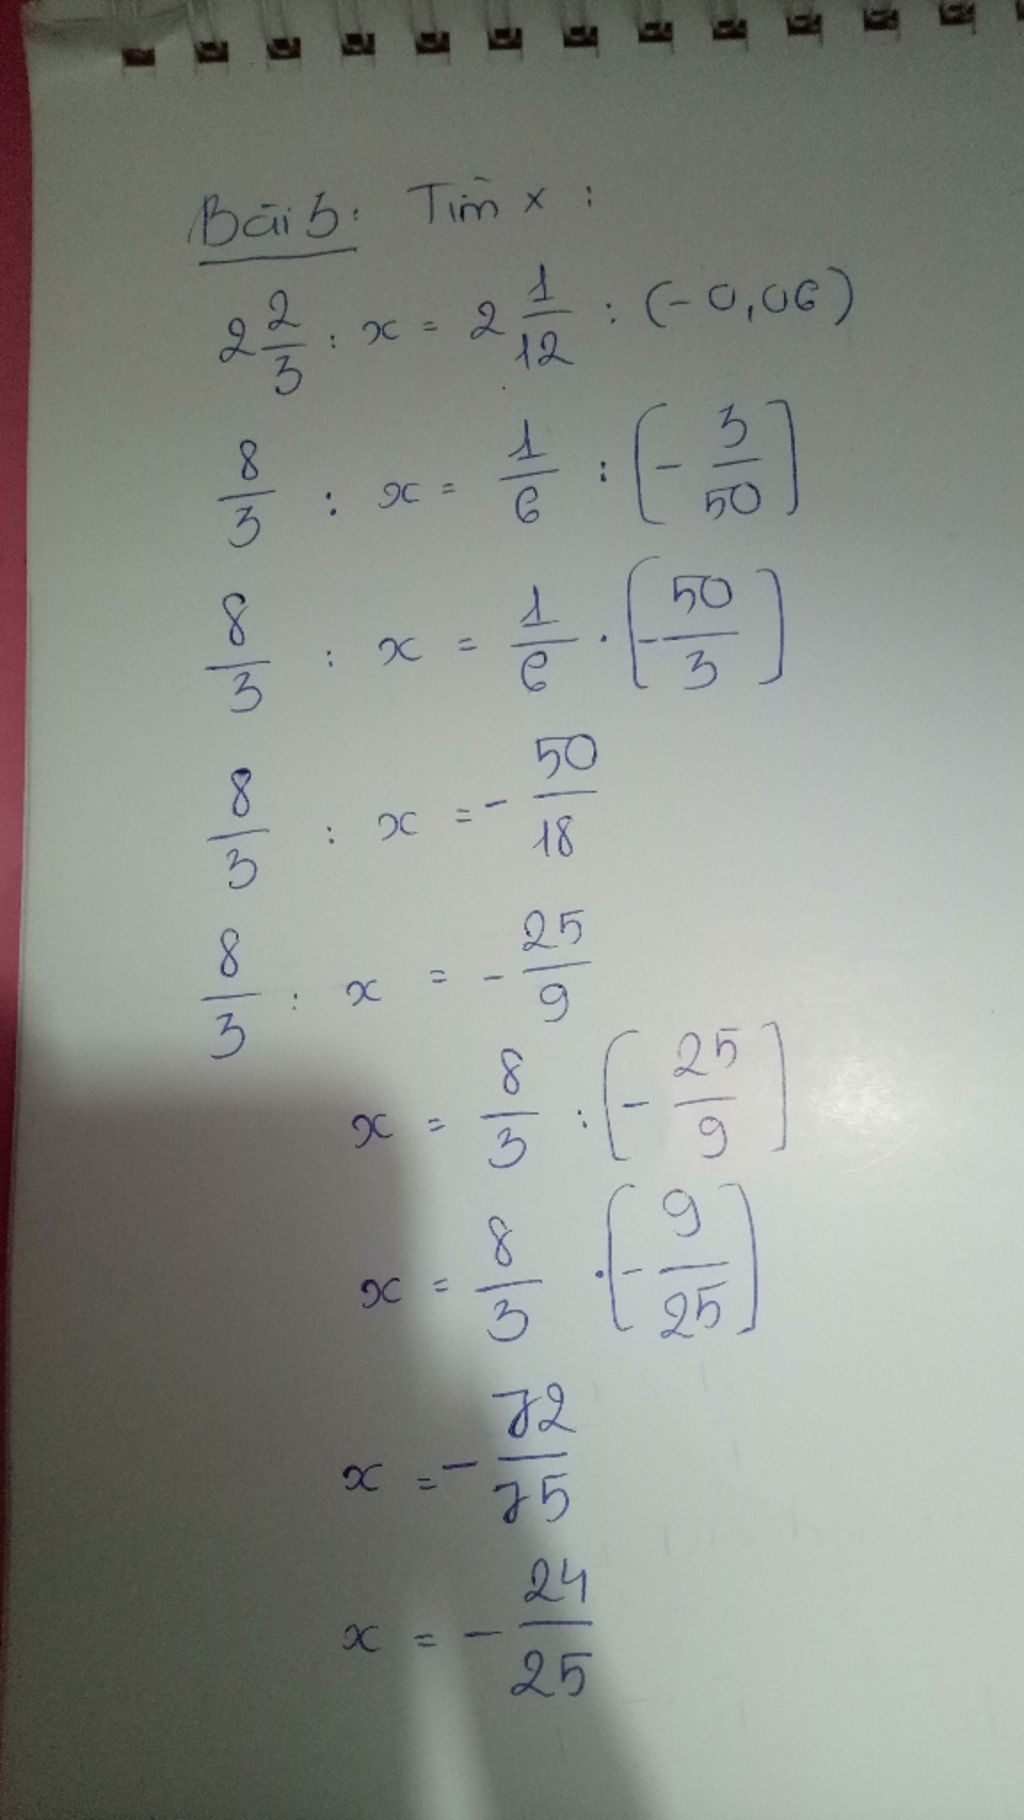 Bài 3: Tìm x :
2 2/3 : x = 2 1/12 : (-0,06)
8/3 : x = 1/6 : (- 3/50)
8/3 : x = 1/6 . (- 50/3)
8/3 : x = - 50/18
8/3 : x = - 25/9
x = 8/3 : (- 25/9)
x = 8/3 . (- 9/25)
x = - 72/75
x = - 24/25